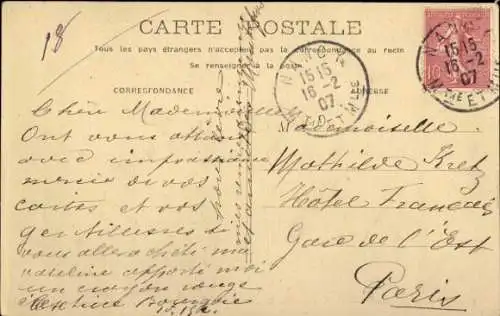 CARTE POSTALE
Tous les pays étrangers n'acceptent pas la correspondance au recto
Se renseigner à la poste
CORRESPONDANCE
ADRESSE
NANCY
15 15
16-2
07
MTHE ET MLLE
NANCY
15 15
16-2
07
ET MLLE
10
Chère Mademoiselle
Ont vous attend
avec impatience
merci de vos
cartes et vos
gentillesses si
vous allez acheté ma
vaseline apporté moi
un crayon rouge
Mademoiselle
Mathilde Kretz
Hôtel Français
Gare de l'Est
Paris